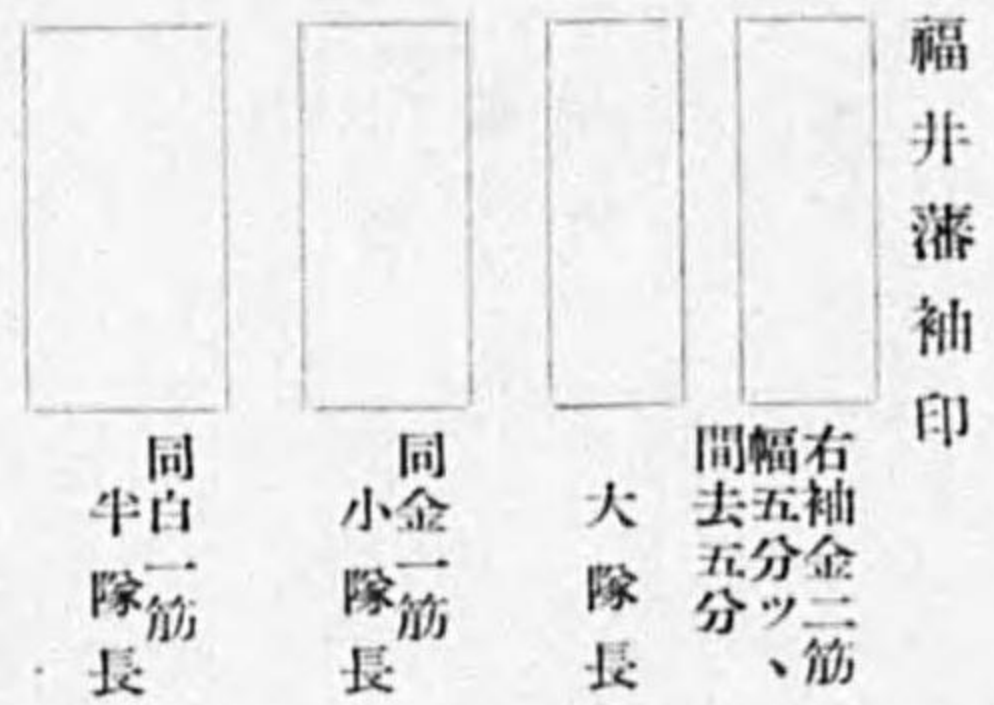 福井藩袖印
右袖金二筋
幅五分ッヽ
間去五分
大隊長
同金一筋
小隊長
同白一筋
半隊長